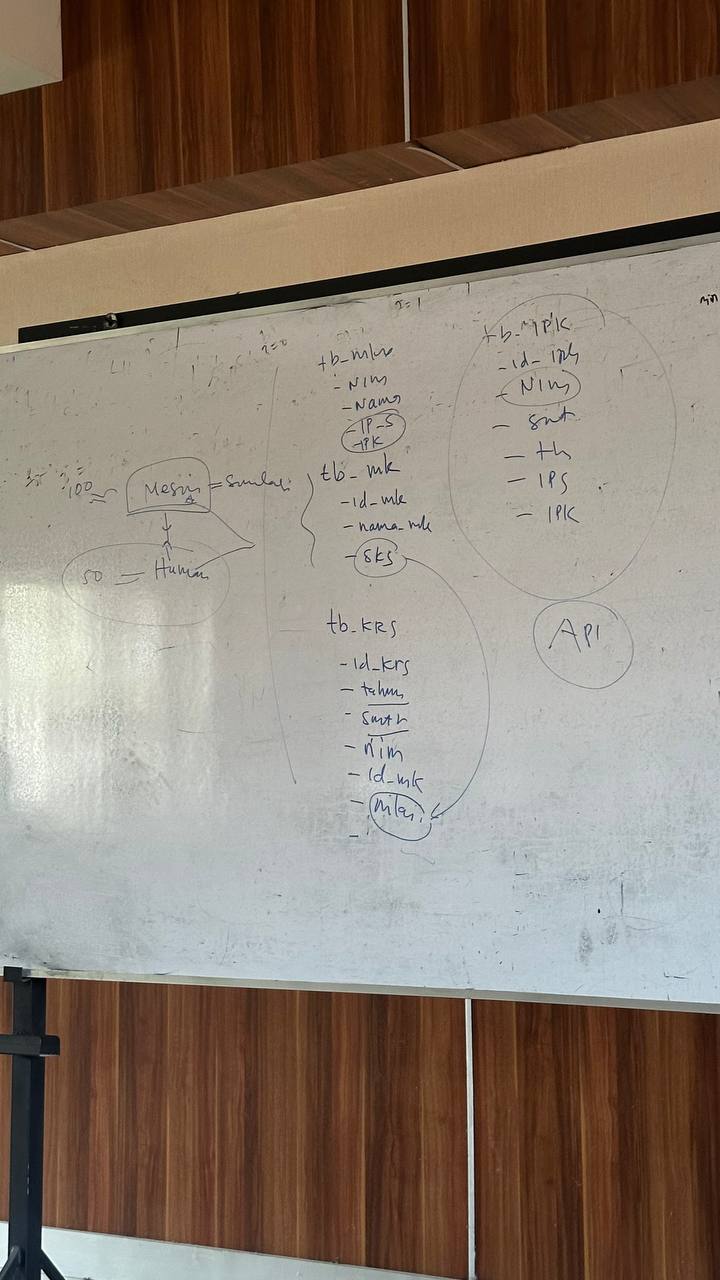 100
Mesin = Simulasi
50 = Human
tb_mhs
- Nim
- Nama
- IP_S
- IPK
tb_mk
- id_mk
- nama_mk
- SKS
tb_KRS
- id_krs
- tahun
- smtr
- nim
- id_mk
- nilai
-
tb_IPK
- id_ipk
- Nim
- smt
- th
- IPS
- IPK
API